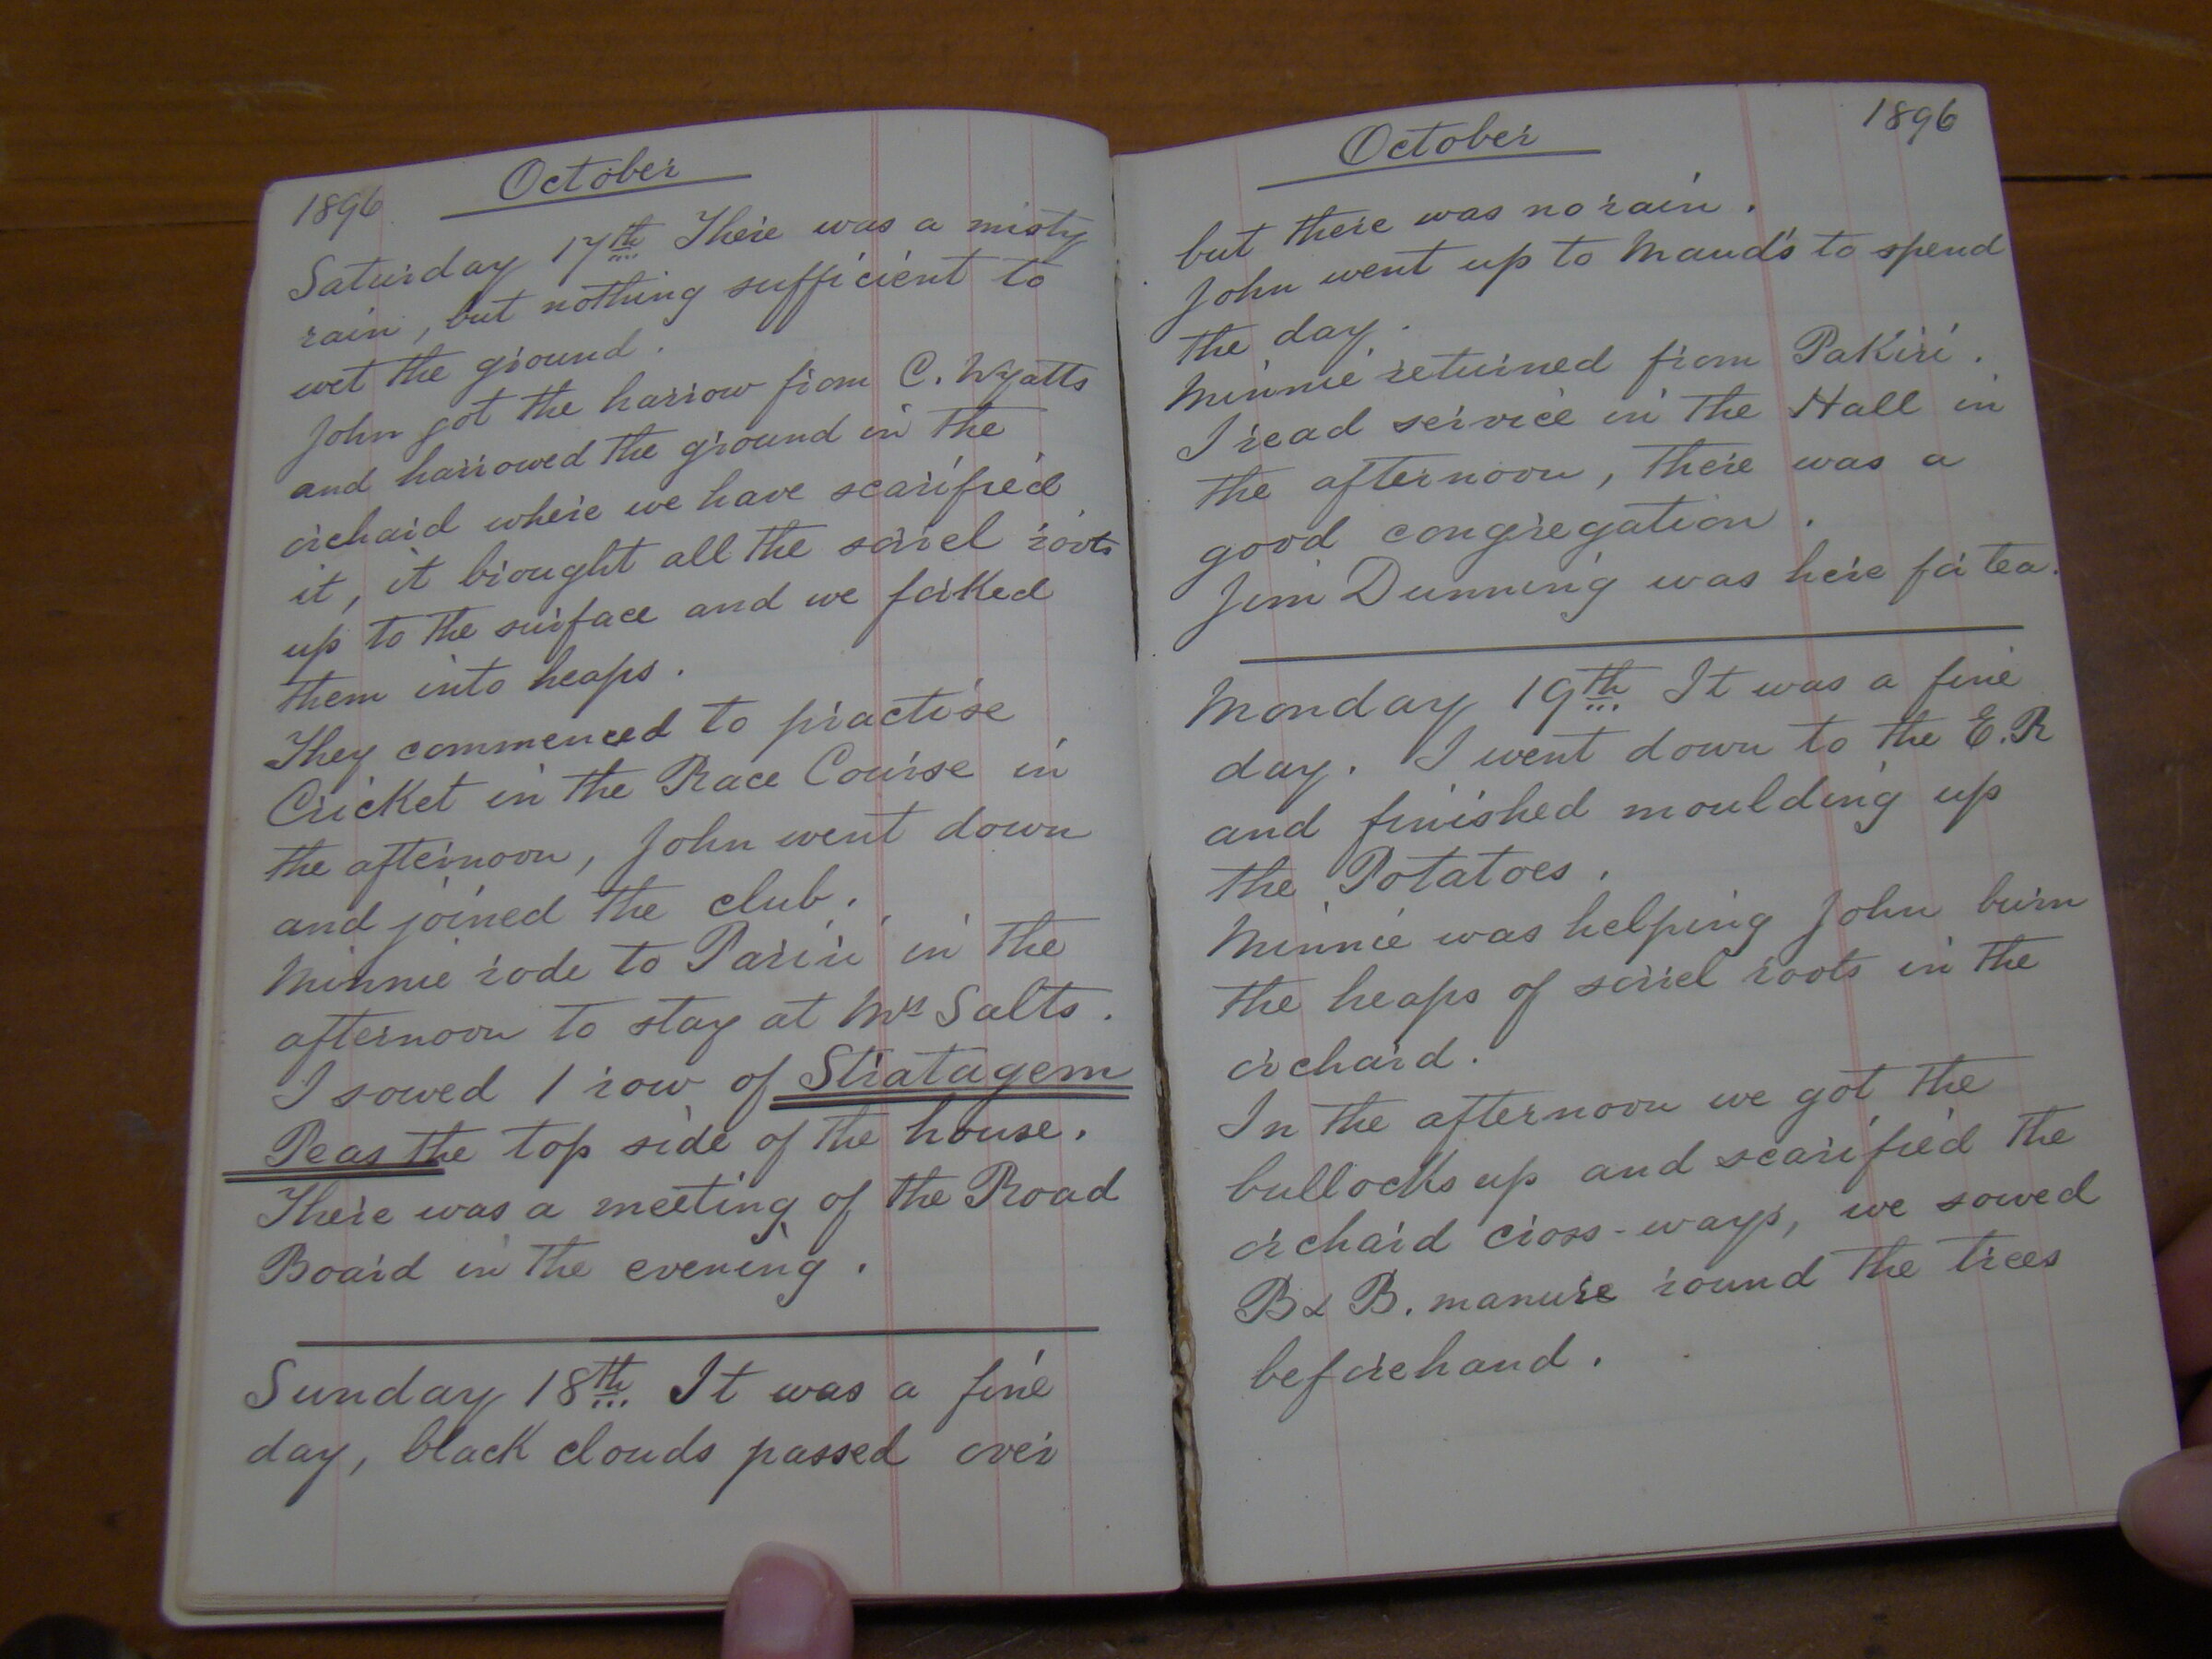 1896 October
Saturday 17th There was a misty
rain, but nothing sufficient to
wet the ground.
John got the harrow from C. Wyatts
and harrowed the ground in the
orchard where we have scarified
it, it brought all the sorrel roots
up to the surface and we forked
them into heaps.
They commenced to practise
Cricket in the Race Course in
the afternoon, John went down
and joined the club.
Minnie rode to Pariri in the
afternoon to stay at Mrs Salts.
I sowed 1 row of Stratagem
Peas the top side of the house.
There was a meeting of the Road
Board in the evening.
Sunday 18th It was a fine
day, black clouds passed over
October 1896
but there was no rain.
John went up to Maud's to spend
the day.
Minnie returned from Pakiri.
I read service in the Hall in
the afternoon, there was a
good congregation.
Jim Dunning was here for tea.
Monday 19th It was a fine
day. I went down to the E.R
and finished moulding up
the Potatoes.
Minnie was helping John burn
the heaps of sorrel roots in the
orchard.
In the afternoon we got the
bullocks up and scarified the
orchard cross-ways, we sowed
B & B. manure round the trees
beforehand.